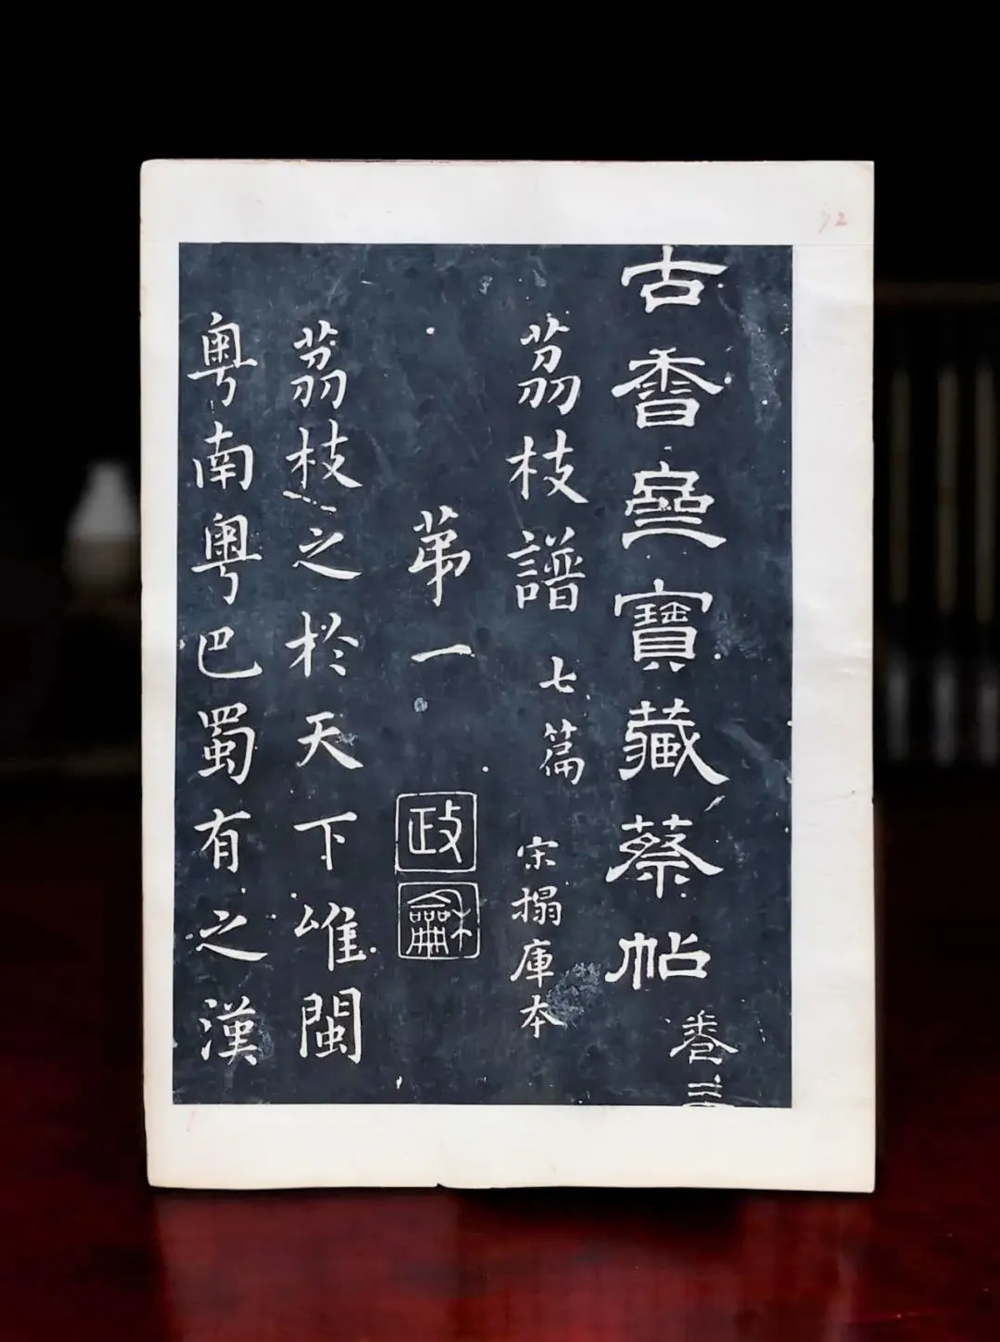 古香齋寶藏蔡帖 卷
茘枝譜 七篇 宋搨庫本
苐一
政
龢
茘枝之於天下唯閩
粵南粵巴蜀有之漢
72